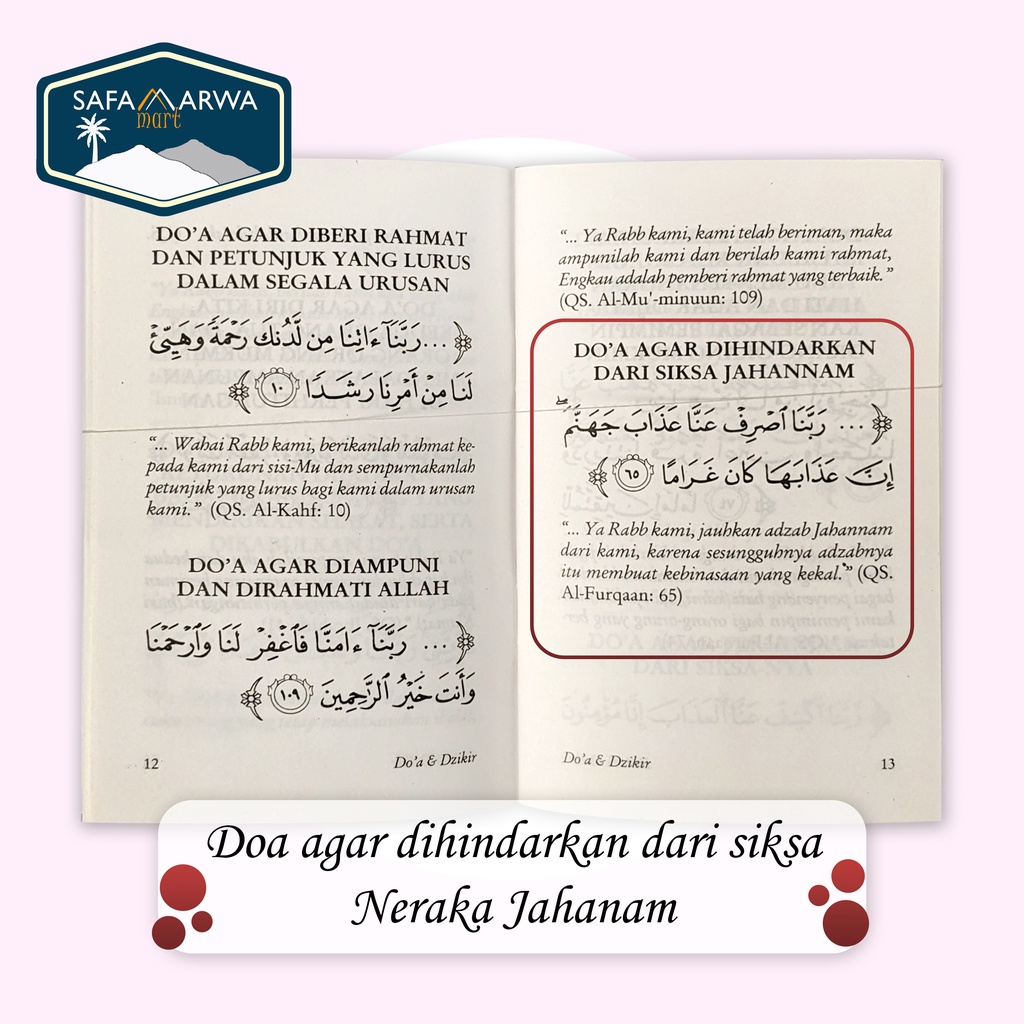 SAFA MARWA
mart
DO'A AGAR DIBERI RAHMAT
DAN PETUNJUK YANG LURUS
DALAM SEGALA URUSAN
﴿ ...رَبَّنَآ ءَاتِنَا مِن لَّدُنكَ رَحْمَةً وَهَيِّئْ
لَنَا مِنْ أَمْرِنَا رَشَدًا ١٠ ﴾
“... Wahai Rabb kami, berikanlah rahmat ke-
pada kami dari sisi-Mu dan sempurnakanlah
petunjuk yang lurus bagi kami dalam urusan
kami.” (QS. Al-Kahf: 10)
DO'A AGAR DIAMPUNI
DAN DIRAHMATI ALLAH
﴿ ... رَبَّنَآ ءَامَنَّا فَٱغْفِرْ لَنَا وَٱرْحَمْنَا
وَأَنتَ خَيْرُ ٱلرَّٰحِمِينَ ١٠٩ ﴾
12
Do'a & Dzikir
“... Ya Rabb kami, kami telah beriman, maka
ampunilah kami dan berilah kami rahmat,
Engkau adalah pemberi rahmat yang terbaik.”
(QS. Al-Mu'-minuun: 109)
DO'A AGAR DIHINDARKAN
DARI SIKSA JAHANNAM
﴿ ... رَبَّنَا ٱصْرِفْ عَنَّا عَذَابَ جَهَنَّمَ ۖ
إِنَّ عَذَابَهَا كَانَ غَرَامًا ٦٥ ﴾
“... Ya Rabb kami, jauhkan adzab Jahannam
dari kami, karena sesungguhnya adzabnya
itu membuat kebinasaan yang kekal.” (QS.
Al-Furqaan: 65)
Do'a & Dzikir
13
Doa agar dihindarkan dari siksa
Neraka Jahanam